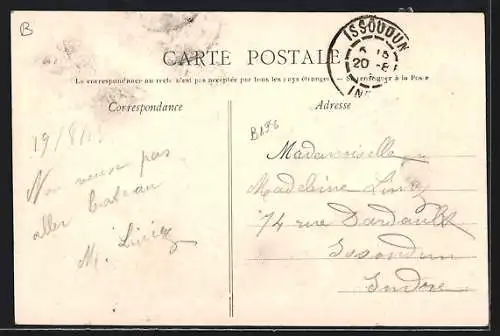 B
CARTE POSTALE
La correspondance au recto n'est pas acceptée par tous les pays étrangers. - Se renseigner à la Poste
ISSOUDUN
20 -8
IN
Correspondance
Adresse
19/8/
pas
aller bateau
M.
Mademoiselle
Madeleine
74 rue Dardault
Issoudun
Indre